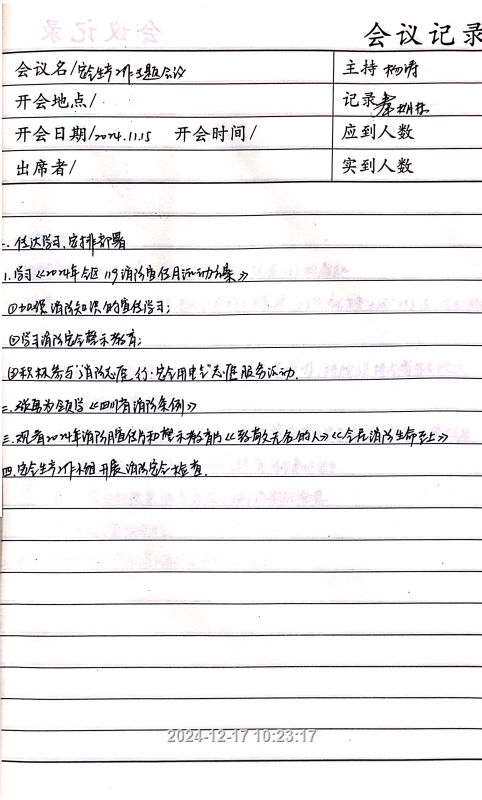 会议记录
会议名/安全生产工作主题会议 主持 杨涛
开会地点/ 记录
开会日期/2024.11.15 开会时间/ 应到人数
出席者/ 实到人数
一. 传达学习、安排部署
1.学习《2024年全区119消防宣传月活动方案》
①加强消防知识的宣传学习;
②学习消防安全警示教育;
③积极参与"消防志愿行·安全用电"志愿服务活动.
二. 领学《四川省消防条例》
三.观看2024年消防月宣传片和警示教育片《致敬无名的人》《全民消防生命至上》
四.安全生产工作小组开展消防安全检查.
2024-12-17 10:23:17